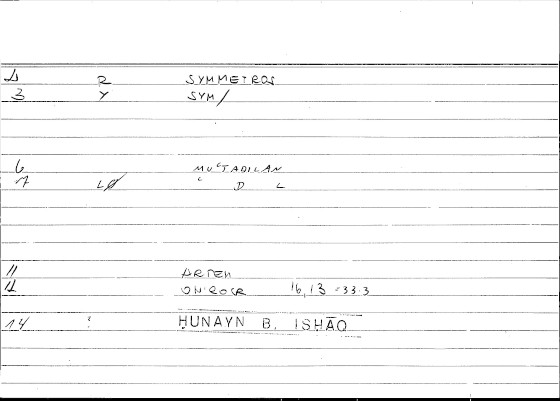 1 R SYMMETROS
3 Y SYM/
6 MUʿTADILAN
7 LØ ʿ D L
11 ARTEM
12 ONIROCR 16,13 =33.3
14 : ḤUNAYN B. ISḤĀQ